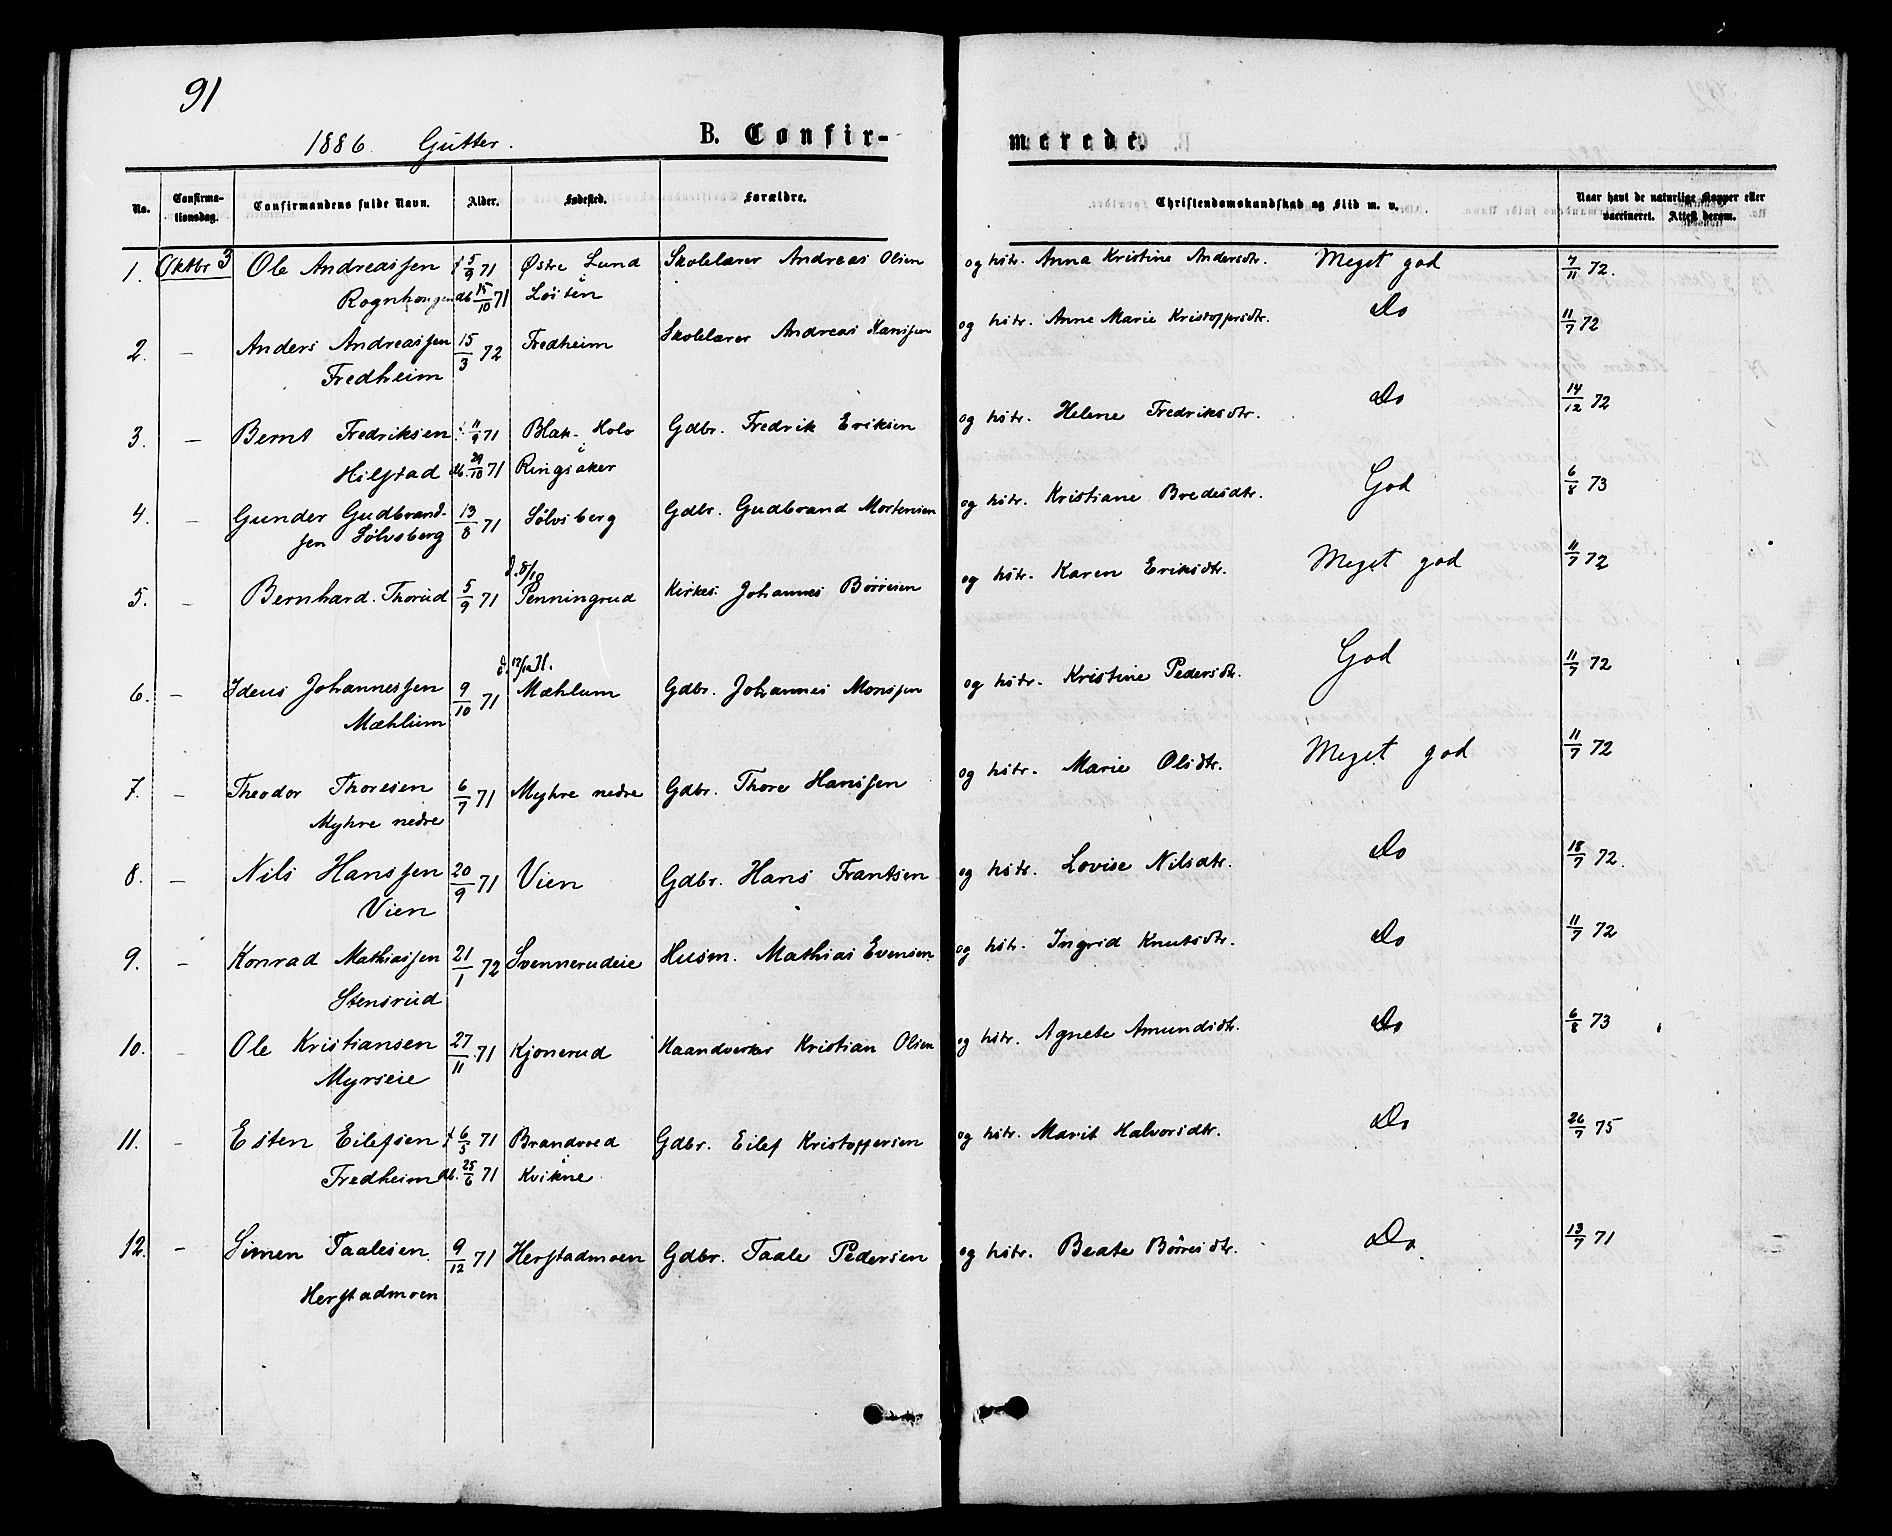 91
1886. Gutter. B. Confirmerede.
No. Confirmationsdag. Confirmandens fulde Navn. Alder. Fødested. Forældre. Christendomskundskab og Flid m. v. Naar havt de naturlige Kopper eller vaccineret. Attest derom.
1. Oktbr 3 Ole Andreassen f 5/9 71 Østre Lund Skolelærer Andreas Olsen og hstr. Anna Kristine Andersdtr. Meget god 7/11 72.
Rognhougen db 15/10 71 i Løiten
2. – Anders Andreassen 15/3 72 Fredheim Skolelærer Andreas Hanssen og hstr. Anne Marie Kristoffersdtr. Do 11/7 72
Fredheim
3. – Bernt Fredriksen f. 11/9 71 Blak. Holo Gdbr. Fredrik Eriksen og hstr. Helene Fredriksdtr. Do 14/12 72
Hilstad db. 29/10 71 i Ringsaker
4. – Gunder Gudbrand- 13/8 71 Sølvsberg Gdbr. Gudbrand Mortensen og hstr. Kristiane Bredesdtr. God 6/8 73
sen Sølvsberg
d. 8/10
5. – Bernhard. Thorud 5/9 71 Penningrud Kirkes. Johannes Børresen og hstr. Karen Eriksdtr. Meget god 11/7 72
d. 17/12 71.
6. – Ideus Johannessen 9/10 71 Mæhlum Gdbr. Johannes Monssen og hstr. Kristine Pedersdtr. God 11/7 72
Mæhlum
7. – Theodor Thoresen 6/7 71 Myhre nedre Gdbr. Thore Hanssen og hstr. Marie Olsdtr. Meget god 11/7 72
Myhre nedre
8. – Nils Hanssen 20/9 71 Vien Gdbr. Hans Frantsen og hstr. Lovise Nilsdtr. Do 18/7 72.
Vien
9. – Konrad Mathiassen 21/1 72 Svennerudeie Husm. Mathias Evensen og hstr. Ingrid Knutsdtr. Do 11/7 72
Stensrud
10. – Ole Kristiansen 27/11 71 Kjonerud Haandverker Kristian Olsen og hstr. Agnete Amundsdtr. Do 6/8 73
Myrseie
11. – Esten Eilefsen f 6/5 71 Brandvoed Gdbr. Eilef Kristoffersen og hstr. Marit Halvorsdtr. Do 26/7 75
Fredheim db. 25/6 71 i Kvikne
12. – Simen Taalesen 9/12 71 Herstadmoen Gdbr. Taale Pedersen og hstr. Beate Børresdtr. Do. 13/7 71
Herstadmoen